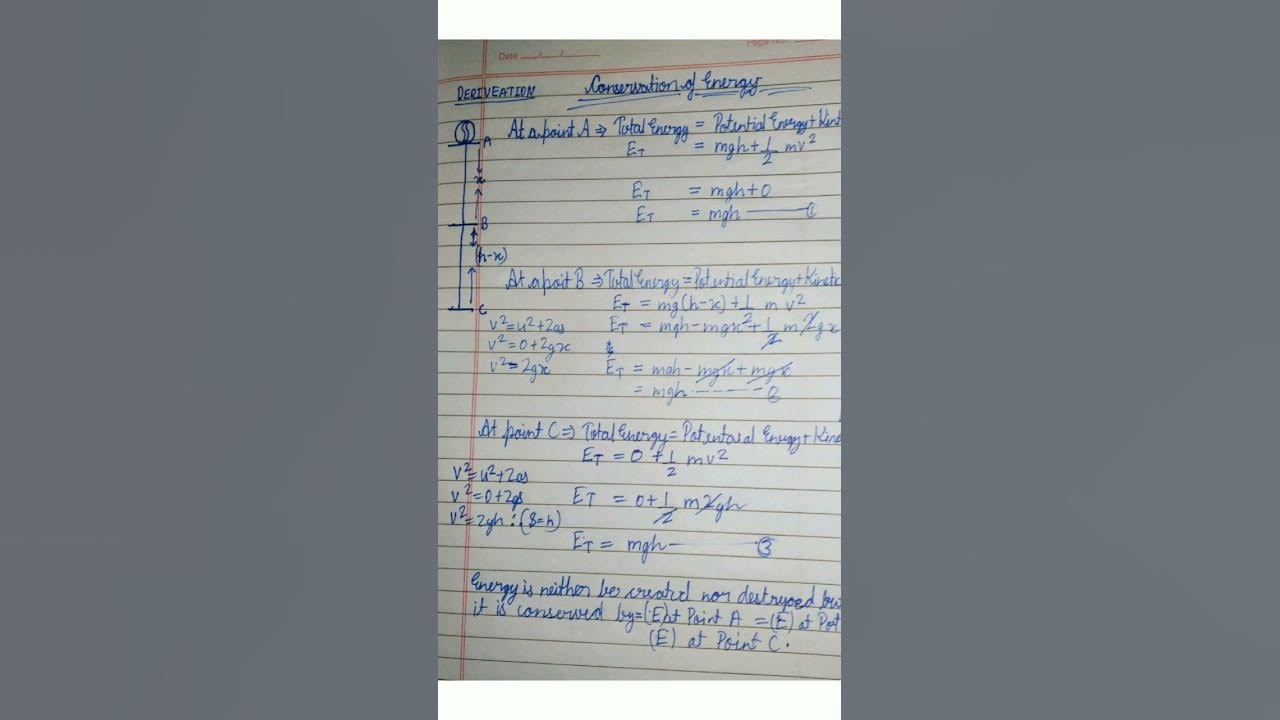 Date ___/___/___ Page No.:
DERIVEATION Conservation of Energy
At a point A ⇒ Total Energy = Potential Energy + Kint
A
E_T = mgh + 1/2 mv²
x
E_T = mgh + 0
E_T = mgh ——— ①
B
(h-x)
At a poit B ⇒ Total Energy = Potential Energy + Kinetic
E_T = mg(h-x) + 1/2 m v²
C
v² = u² + 2as E_T = mgh - mgx² + 1/2 m 2gx
v² = 0 + 2gx
v² = 2gx E_T = mgh - mgx + mgx
= mgh ------- ②
At point C ⇒ Total Energy = Potentaial Energy + Kine
E_T = 0 + 1/2 mv²
v² = u² + 2as
v² = 0 + 2gs E_T = 0 + 1/2 m 2gh
v² = 2gh : (S = h)
E_T = mgh ——— ③
Energy is neither be created nor destryoed
it is conserved by = (E) at Point A = (E) at Poi
(E) at Point C.